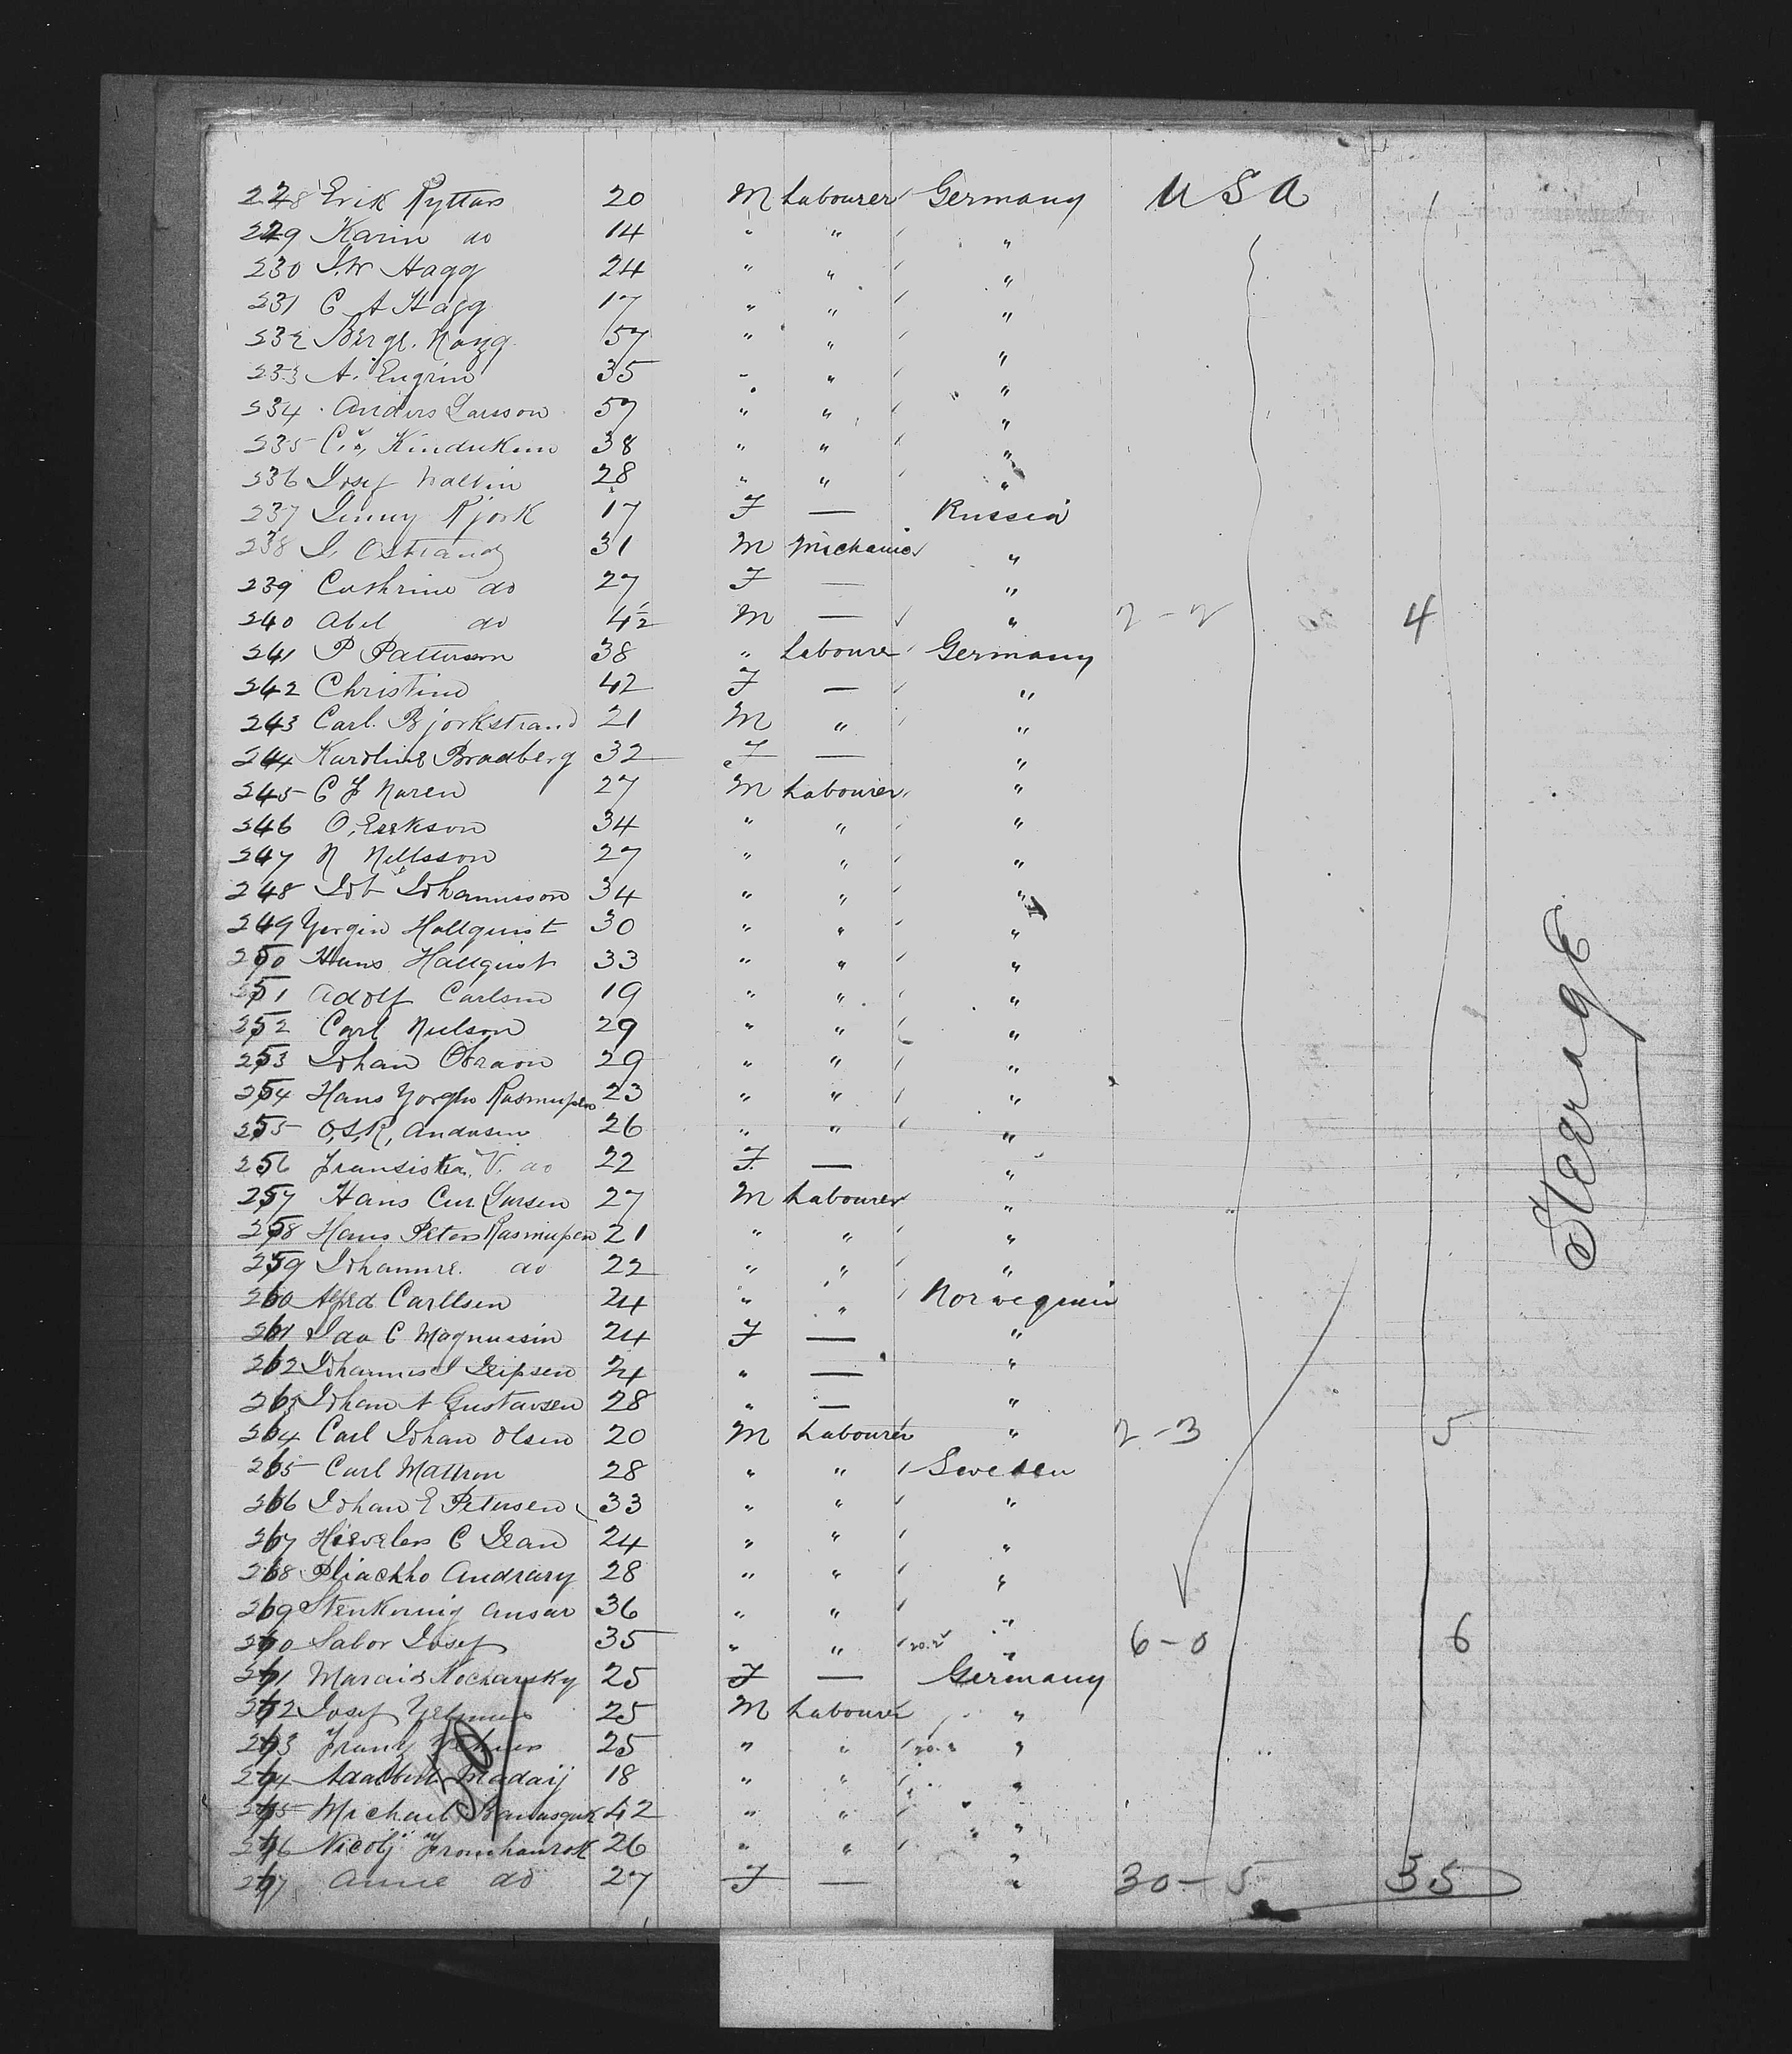 228 Erik Ryttars 20 M Labourer Germany USA 1
229 Karin do 14 " " "
230 J.W Hagg 24 " " "
231 C A Hagg 17 " " "
232 57 " " "
233 A. Engrim 35 " " "
234 Anders Larsson 57 " " "
235 38 " " "
236 Josef Wallin 28 " " "
237 Jenny Kjork 17 F — Russia
238 J. Ostrand 31 M Mechanic "
239 Cathrine do 27 F — "
240 Abel do 4½ M — " 2-2 4
241 P Patterson 38 " Labourer Germany
242 Christine 42 F — "
243 Carl Bjorkstrand 21 M " "
244 Karoline Broadberg 32 F — "
245 C J Noren 27 M Labourer "
246 O. Erikson 34 " " "
247 N Nillsson 27 " " "
248 Johannisson 34 " " "
249 Yorgin Hallquist 30 " " "
250 Hans Hallquist 33 " " "
251 Adolf Carlson 19 " " "
252 Carl Nielson 29 " " "
253 Johan 29 " " "
254 Hans Yorghn Rasmussen 23 " " "
255 O.S.K. Andersen 26 " " "
256 Fransiska V. do 22 F — "
257 Hans Larsen 27 M Labourer "
258 Hans Peters Rasmussen 21 " " "
259 Johanne do 22 " " "
260 Alfred Carllsen 24 " " Norwegain
261 Ida C Magnussin 24 F — "
262 Johannes J Jepsen 24 " — "
263 Johan A Gustavsen 28 " — "
264 Carl Johan Olsen 20 M Labourer " 2-3 5
265 Carl Mattson 28 " " Sweden
266 Johan E Petersen 33 " " "
267 C Jean 24 " " "
268 Andrary 28 " " "
269 Ansar 36 " " "
270 Sabor Josef 35 " " " 6-0 6
271 Kocharsky 25 F — Germany
272 Josef 25 M Labourer "
273 Franz 25 " " "
274 Adalbert Madaij 18 " " "
275 Michael 42 " " "
276 Nicolj 26 " " "
277 Anne do 27 F — " 30-5 35
50
Steerage